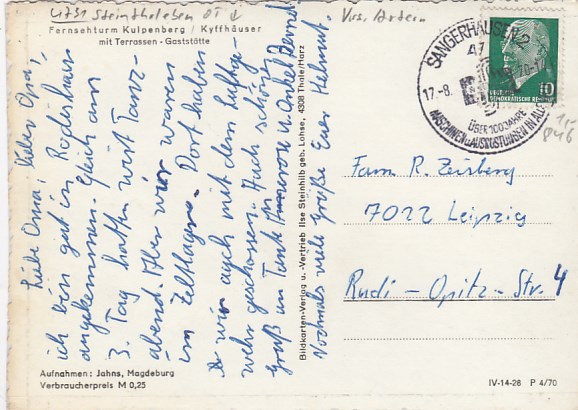 4731 Steinthaleben
Fernsehturm Kulpenberg / Kyffhäuser
mit Terrassen-Gaststätte
Krs. Artern
SANGERHAUSEN 2
47
17.-8.
ÜBER 100 JAHRE
MASCHINEN u. AUSRÜSTUNGEN IN ALLE
10
DEUTSCHE
DEMOKRATISCHE
Liebe Oma, lieber Opa,
ich bin gut in
angekommen. Gleich am
3. Tag hatten wir Tanz-
abend. Aber wir waren
im Zeltlager. Dort haben
wir auch mit dem Luftge-
wehr geschossen. Auch schöne
Grüße an Tante u. Onkel Bernd
Nochmals viele Grüße Euer Helmut.
Bildkarten-Verlag u. -Vertrieb Ilse Steinhilb geb. Lohse, 4308 Thale/Harz
Fam R. Zeisberg
7022 Leipzig
Rudi-Opitz-Str. 4
Aufnahmen: Jahns, Magdeburg
Verbraucherpreis M 0,25
IV-14-28 P 4/70